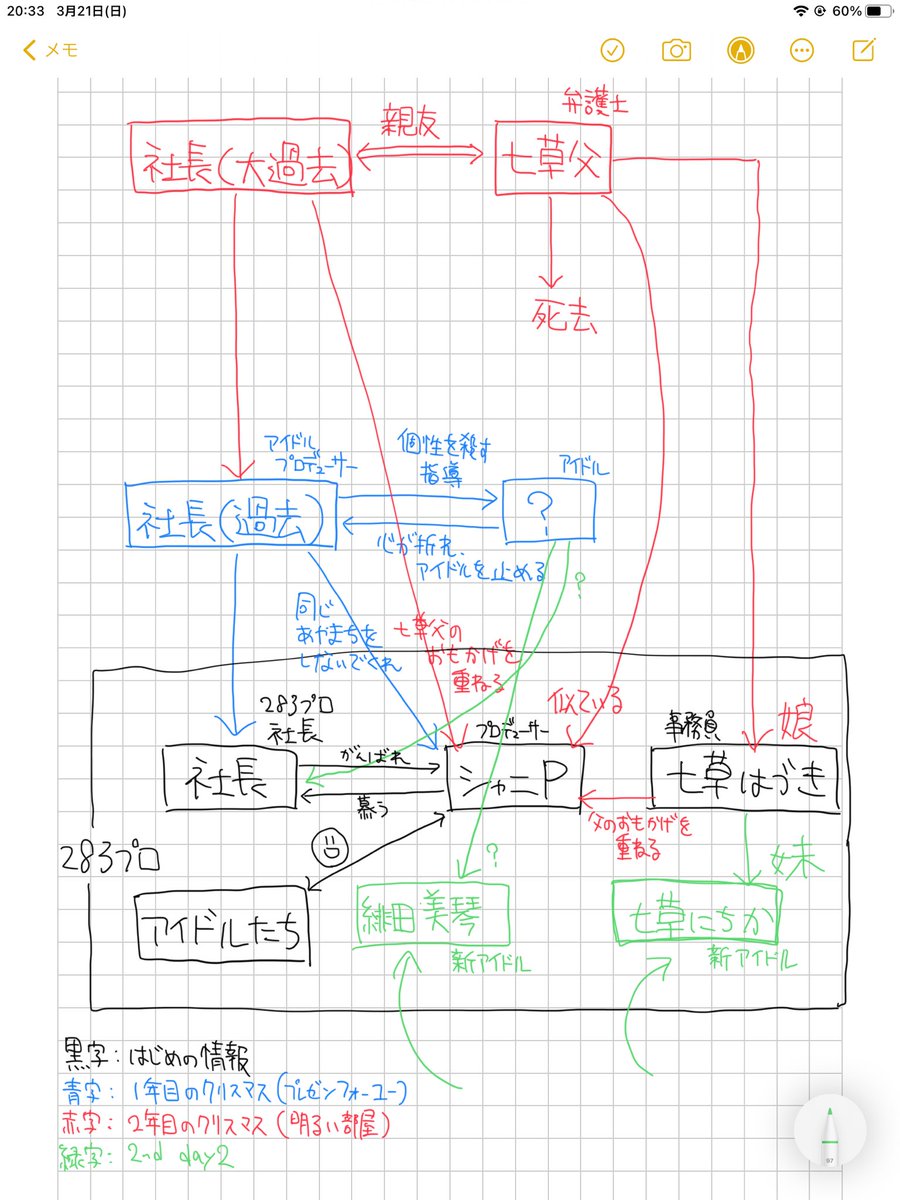 20:33 3月21日(日) 60%
メモ
弁護士
親友
社長(大過去)
七草父
死去
アイドル
プロデューサー
個性を殺す
指導
アイドル
社長(過去)
?
心が折れ、
アイドルを止める
?
同じ
あやまちを
しないでくれ
七草父の
おもかげを
重ねる
似ている
娘
283プロ
社長
がんばれ
プロデューサー
事務員
社長
シャニP
七草はづき
慕う
父のおもかげを
重ねる
283プロ
?
妹
アイドルたち
緋田美琴
七草にちか
新アイドル
新アイドル
黒字:はじめの情報
青字:1年目のクリスマス(プレゼンフォーユー)
赤字:2年目のクリスマス(明るい部屋)
緑字:2nd day2
97